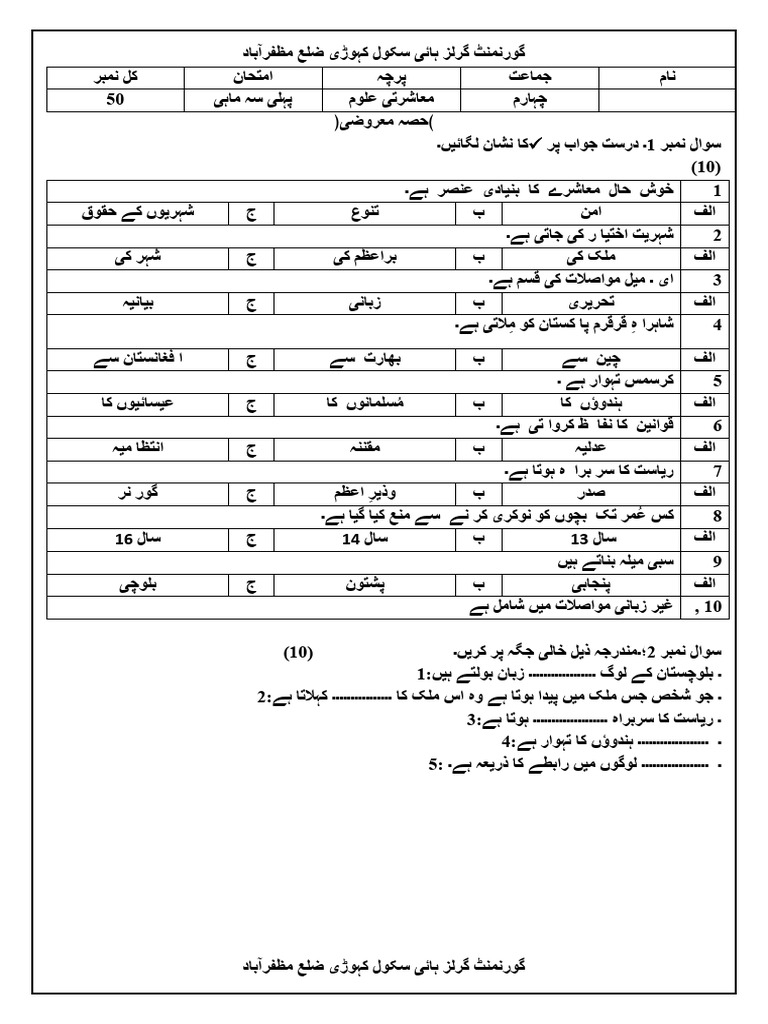 گورنمنٹ گرلز ہائی سکول کہوڑی ضلع مظفرآباد
نام جماعت پرچہ امتحان کل نمبر
چہارم معاشرتی علوم پہلی سہ ماہی 50
)حصہ معروضی(
سوال نمبر 1۔ درست جواب پر ✓ کا نشان لگائیں۔
(10)
1 خوش حال معاشرے کا بنیادی عنصر ہے۔
الف امن ب تنوع ج شہریوں کے حقوق
2 شہریت اختیا ر کی جاتی ہے۔
الف ملک کی ب براعظم کی ج شہر کی
3 ای ۔ میل مواصلات کی قسم ہے۔
الف تحریری ب زبانی ج بیانیہ
4 شاہرا ہِ قرقرم پا کستان کو مِلاتی ہے۔
الف چین سے ب بھارت سے ج ا فغانستان سے
5 کرسمس تہوار ہے ۔
الف ہندوؤں کا ب مُسلمانوں کا ج عیسائیوں کا
6 قوانین کا نفا ظ کروا تی ہے۔
الف عدلیہ ب مقننہ ج انتظا میہ
7 ریاست کا سر برا ہ ہوتا ہے۔
الف صدر ب وذیرِ اعظم ج گور نر
8 کس عُمر تک بچوں کو نوکری کر نے سے منع کیا گیا ہے۔
الف 13 سال ب 14 سال ج 16 سال
9 سبی میلہ بناتے ہیں
الف پنجابی ب پشتون ج بلوچی
10 , غیر زبانی مواصلات میں شامل ہے
سوال نمبر 2؛۔مندرجہ ذیل خالی جگہ پر کریں۔ (10)
۔ بلوچستان کے لوگ .................. زبان بولتے ہیں:1
۔ جو شخص جس ملک میں پیدا ہوتا ہے وہ اس ملک کا ................ کہلاتا ہے:2
۔ ریاست کا سربراہ .................... ہوتا ہے:3
۔ ................... ہندوؤں کا تہوار ہے:4
۔ .................. لوگوں میں رابطے کا ذریعہ ہے۔ :5
گورنمنٹ گرلز ہائی سکول کہوڑی ضلع مظفرآباد